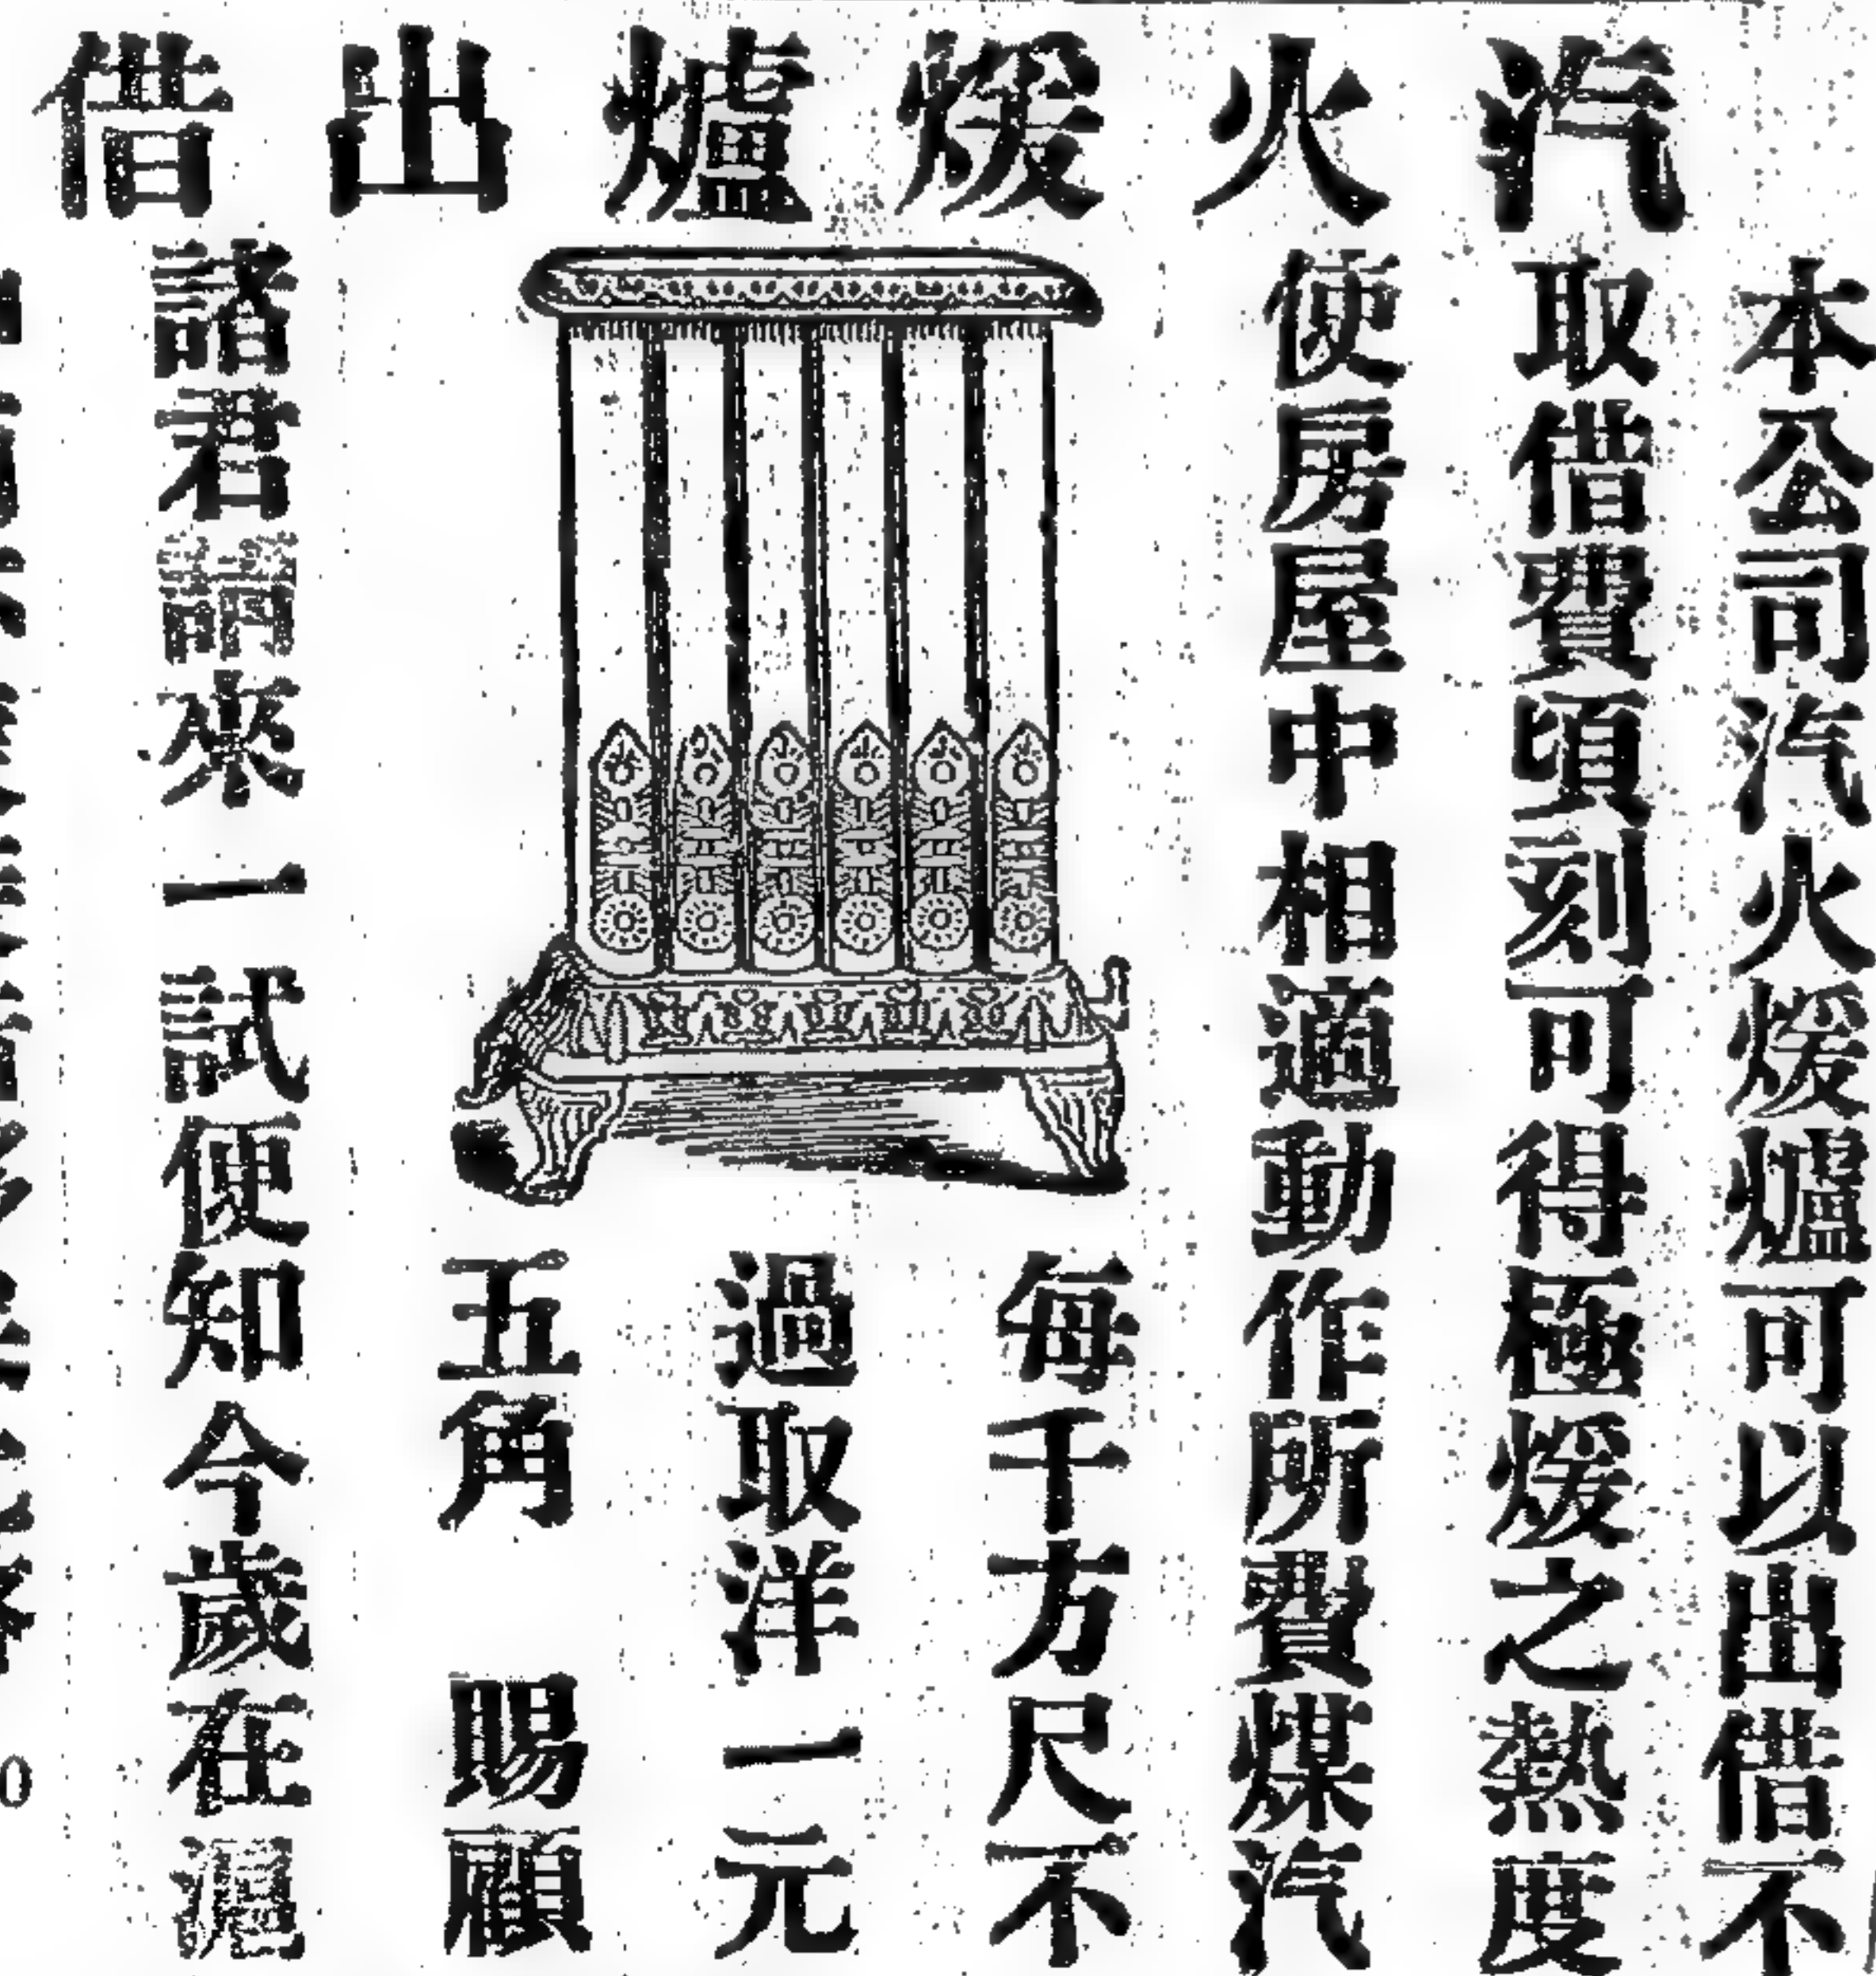 汽火煖爐出借
本公司汽火煖爐可以出借不
取借費頃刻可得極煖之熱度
使房屋中相適動作所費煤汽
每千方尺不
過取洋一元
五角　賜顧
諸君請來一試便知今歲在滬